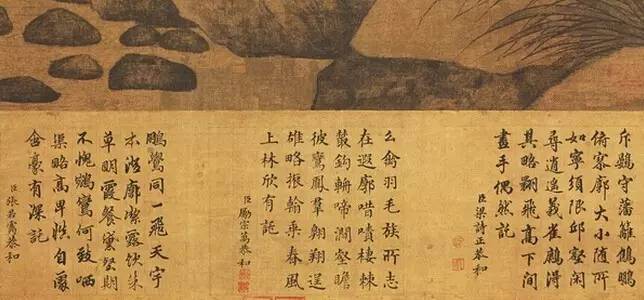 斥鷃守藩籬鵾鵬
倚寥廓大小隨所
如寧須限邱壑閑
尋逍遙義雀鷃得
其略翾飛高下間
畫手偶然託
臣梁詩正恭和
么禽羽毛族所志
在遐廓唶嘖棲棘
叢鉤輈啼澗壑瞻
彼鸞鳳羣翱翔逞
雄略振翰乘春風
上林欣有託
臣勵宗萬恭和
鵬鷽同一飛天宇
本澄廓潔露飲朱
草明霞餐黛壑期
不愧鵷鸞何致哂
渠略高卑自
含豪有深託
臣張若靄恭和